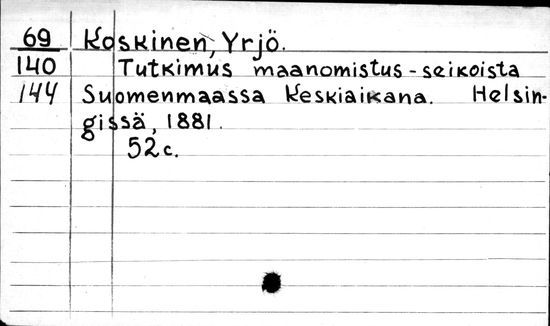 69 Koskinen, Yrjö.
140 Tutkimus maanomistus-seikoista
144 Suomenmaassa Keskiaikana. Helsin-
gissä, 1881.
52c.